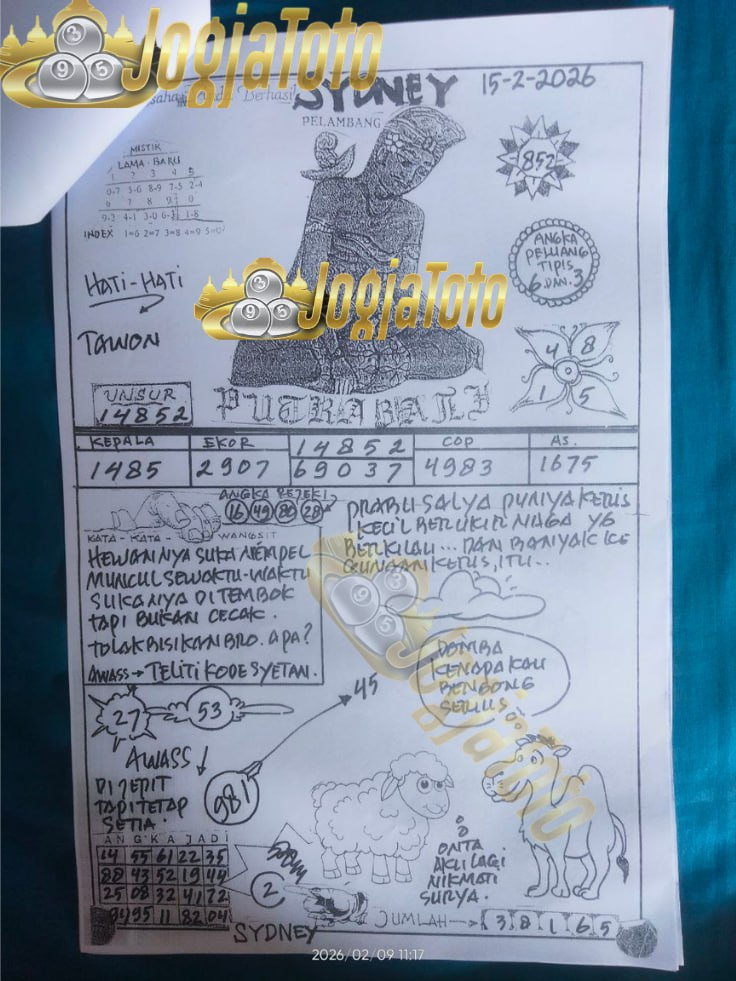 JogjaToto
SYDNEY 15-2-2026
PELAMBANG
MISTIK
LAMA - BARU
1 2 3 4 5
0-7 5-6 8-9 7-5 2-4
6 7 8 9 0
9-2 4-1 3-0 6-3 1-8
INDEX 1=6 2=7 3=8 4=9 5=0
852
ANGKA
PELUANG
TIPIS
6 DAN 3
HATI-HATI
JogjaToto
TAWON
4 8
1 5
UNSUR
14852
PUTRA BALI
KEPALA EKOR 14852 COP AS.
1485 2907 69037 4983 1675
ANGKA REJEKI
16 49 80 28
KATA - KATA - WANGSIT
HEWANNYA SUKA NEMPEL
MUNCUL SEWAKTU-WAKTU
SUKANYA DITEMBOK
TAPI BUKAN CECAK.
TOLAK BISIKAN BRO. APA?
AWASS → TELITI KODE SYETAN.
PRABU SALYA PUNYA KERIS
KECIL BERUKIR NAGA YG
BERKILAU... DAN BANYAK KE
GUNAAN KERIS, ITU..
JogjaToto
DOMBA
KENAPA KAU
BENGONG
SERIUS
27 53
45
AWASS ↓
DIJEPIT
TAPI TETAP
SETIA.
981
ONTA
AKU LAGI
NIKMATI
SURYA.
ANGKA JADI
14 55 61 22 35
88 43 52 19 44
25 08 32 41 72
94 95 11 82 04
2
SYDNEY
JUMLAH → 3 8 1 6 5
2026/02/09 11:17